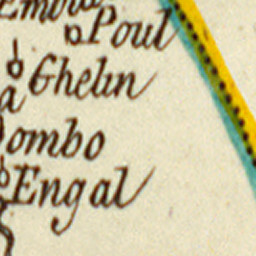 Poul
Ghelin
ombo
Engal